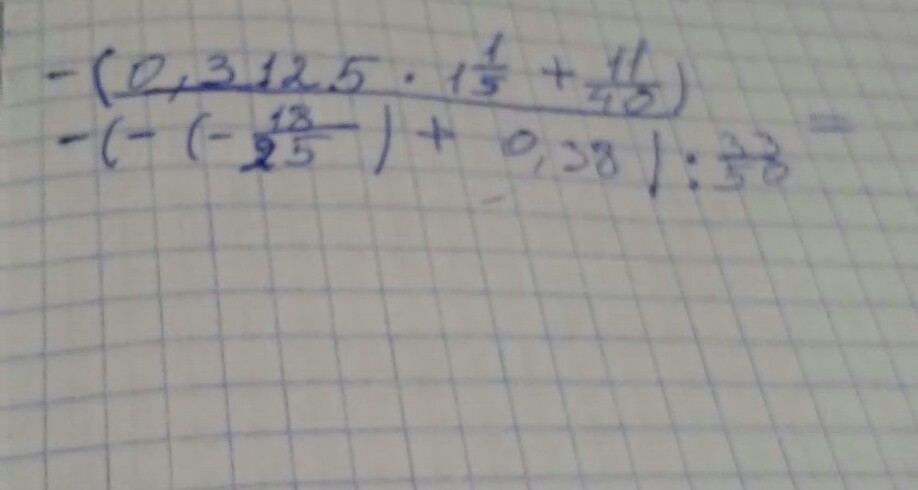 -(0,3125 · 1 1/5 + 11/40)
-(-(-18/25) + 0,38) : 33/50 =